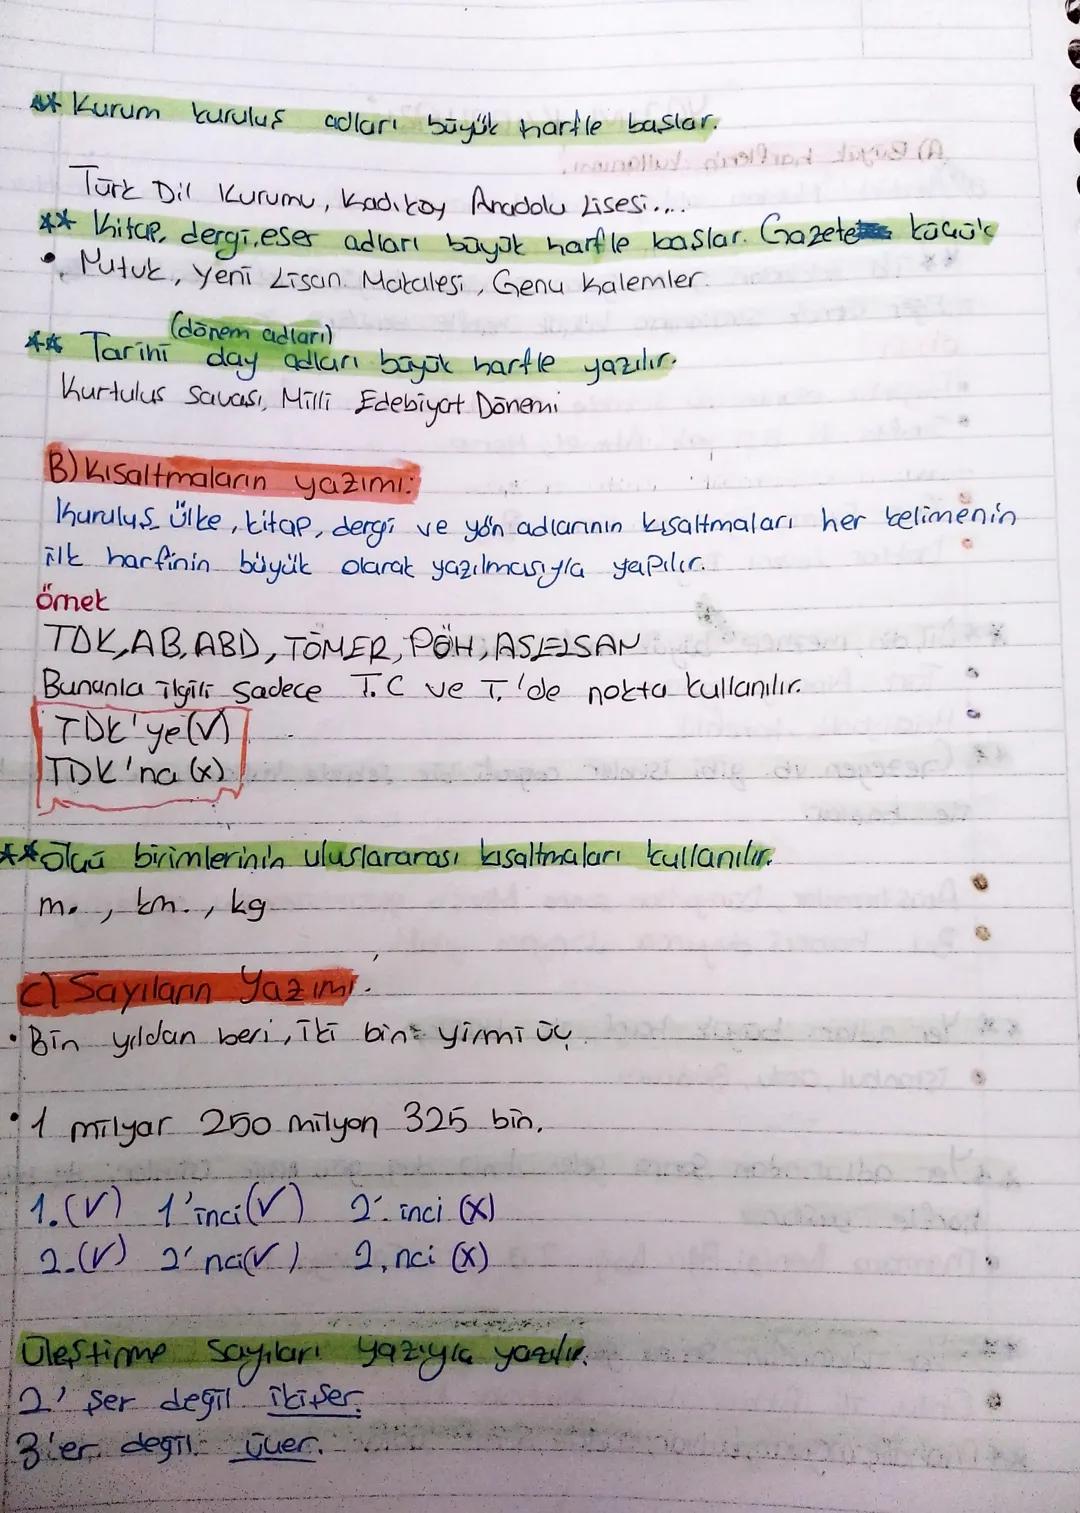 ** Kurum kuruluş adları büyük harfle başlar.
Türk Dil Kurumu, Kadıköy Anadolu Lisesi....
** Kitap, dergi, eser adları büyük harfle başlar. Gazete küçük
• Nutuk, Yeni Lisan Makalesi, Genç Kalemler.
(dönem adları)
** Tarihi olay adları büyük harfle yazılır.
Kurtuluş Savaşı, Milli Edebiyat Dönemi
B) Kısaltmaların yazımı:
Kuruluş ülke, kitap, dergi ve yön adlarının kısaltmaları her kelimenin
ilk harfinin büyük olarak yazılmasıyla yapılır.
örnek
TDK, AB, ABD, TÖMER, PÖH, ASELSAN
Bununla ilgili sadece T.C ve T.'de nokta kullanılır.
TDK'ye (✓)
TDK'na (x)
** Ölçü birimlerinin uluslararası kısaltmaları kullanılır.
m., km., kg
C) Sayıların Yazımı.
• Bin yıldan beri, iki bin yirmi üç
• 1 milyar 250 milyon 325 bin.
1. (✓) 1'inci (✓) 2'. inci (x)
2. (✓) 2'nci (✓) 2. nci (x)
Üleştirme sayıları yazıyla yazılır.
2'şer değil ikişer.
3'er değil üçer.